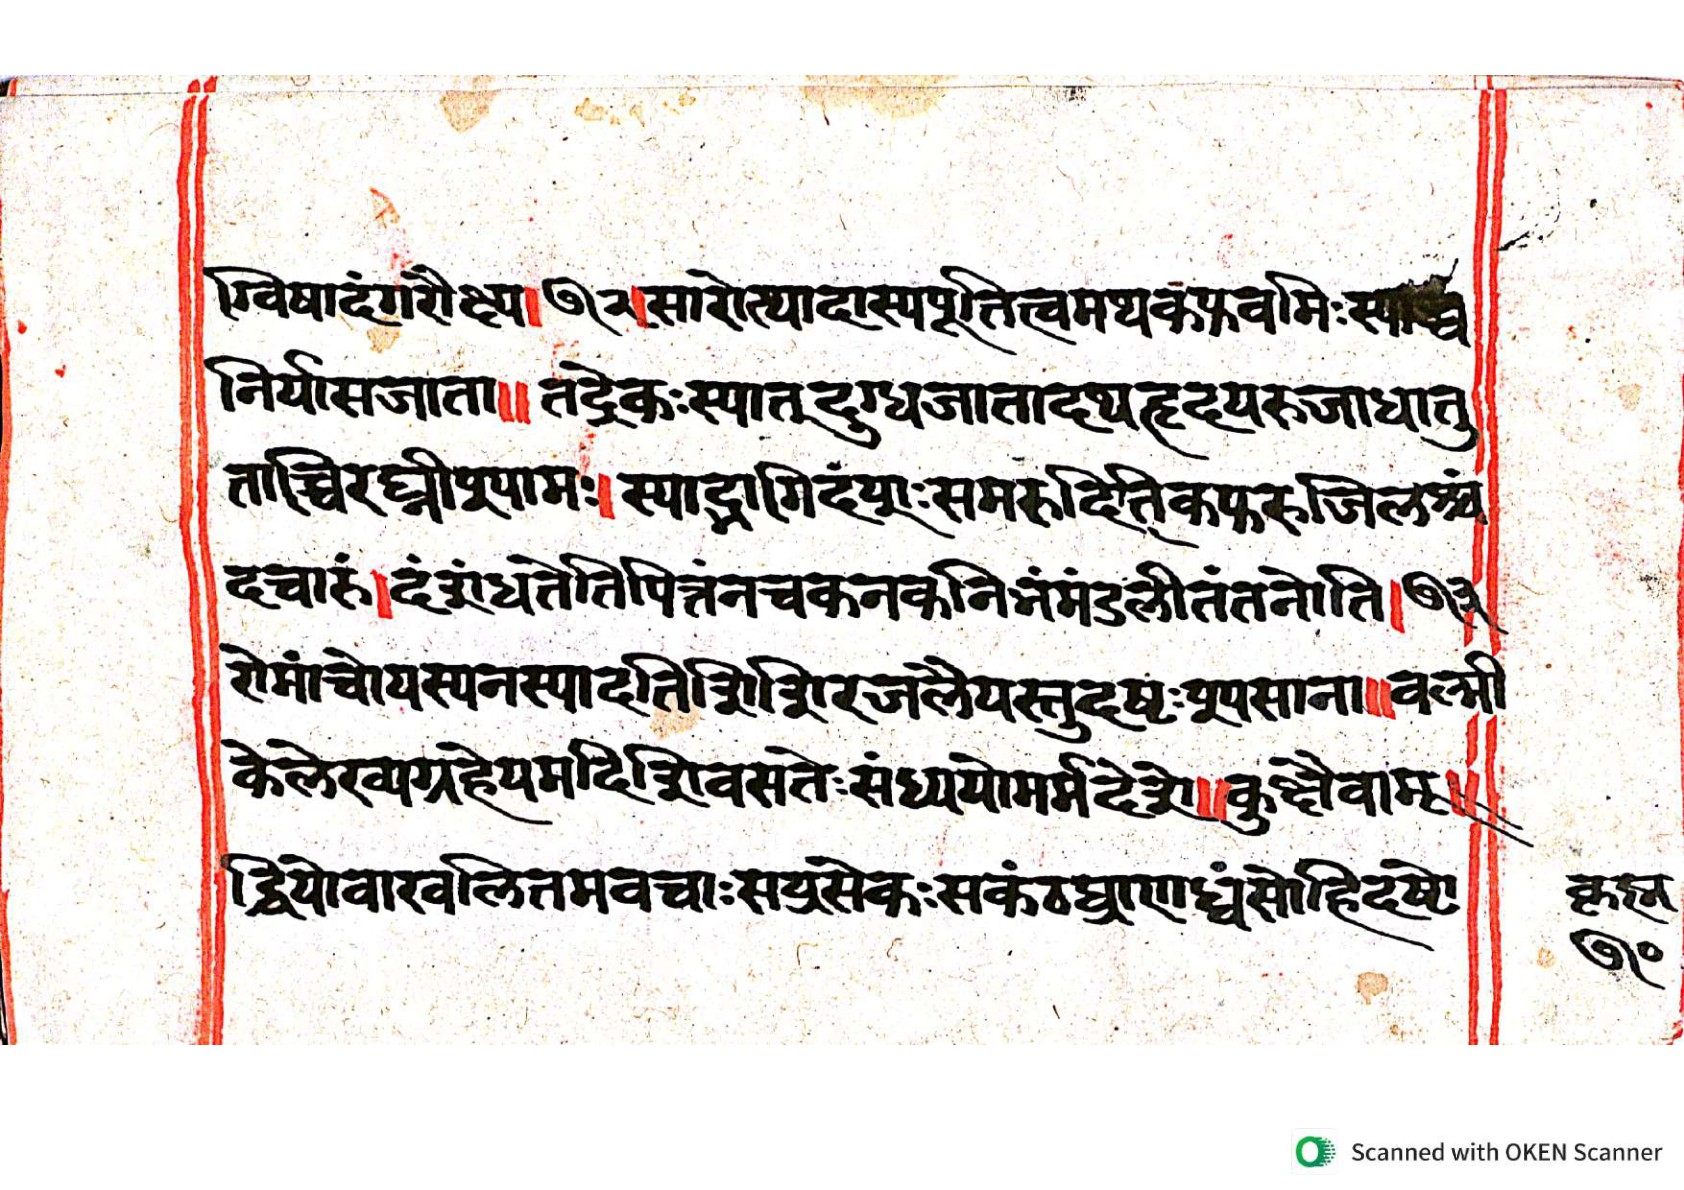 ग्विषादंगरौक्ष्य। ७२।सारोत्यादास्यपूतित्वमथकफवमिःस्याच्च
निर्यासजाता॥ तद्रेकःस्यात्दुग्धजातादथहृदयरुजाधातु
ताच्चिरघ्नीपूपामः। स्याद्वागिदंयुाःसमरुदितिकफरुजिलम्बं
दचारुं।दंशंधतेतिपित्तंनचकनकनिभंमंडलीतंतनोति।७३
रोमांचोयस्यनस्यादतिशिशिरजलैयस्तुदष्टःपूपसाना॥वल्मी
केलेख्यग्रहेयमदिशिवसतेःसंध्ययोमर्मदेशे॥कुष्टैवाम॥
द्धियोवास्खलितमवचाःसप्रसेकःसकंठघ्राणध्वंसोहिदष्टो
७०
Scanned with OKEN Scanner